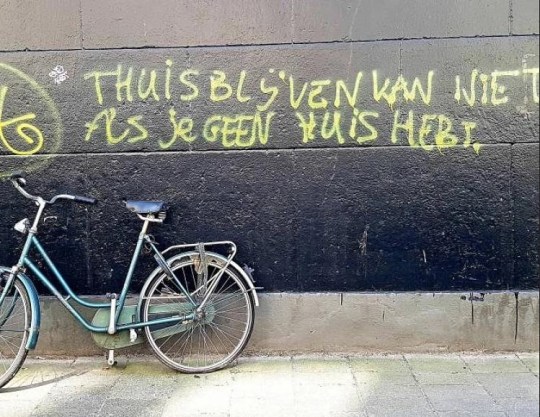 THUISBLIJVEN KAN NIET
ALS JE GEEN HUIS HEBT.